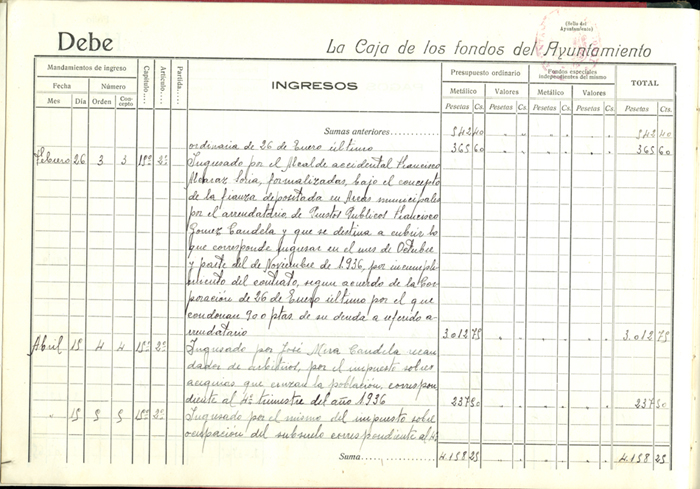 (Sello del Ayuntamiento)
Debe
La Caja de los fondos del Ayuntamiento
Mandamientos de ingreso
Fecha Número
Mes Día Orden Concepto
Capítulo....
Artículo....
Partida....
INGRESOS
Presupuesto ordinario
Metálico Valores
Pesetas Cs. Pesetas Cs.
Fondos especiales independientes del mismo
Metálico Valores
Pesetas Cs. Pesetas Cs.
TOTAL
Pesetas Cs.
Sumas anteriores 542 40 542 40
ordenacia de 26 de Enero último 365 60 365 60
Febrero 26 3 3 15º 2º Ingresado por el Alcalde accidental Francisco
Alcaraz Soria, formalizadas, bajo el concepto
de la fianza depositada en Arcas municipales
por el arrendatario de Puestos Publicos Francisco
Gomez Candela y que se destina a cubrir lo
que corresponde ingresar en el mes de Octubre
y parte del de Noviembre de 1936, por incumpli-
miento del contrato, segun acuerdo de la Cor-
poración de 26 de Enero último por el que
condonan 900 ptas. de su deuda a referido a-
rrendatario 3.012 75 3.012 75
Abril 15 4 4 15º 2º Ingresado por José Mira Candela recau-
dador de arbitrios, por el impuesto sobre
acequias que cruzan la población, correspon-
diente al 4º trimestre del año 1936 237 50 237 50
" 15 5 5 15º 2º Ingresado por el mismo del impuesto sobre
ocupación del subsuelo correspondiente al 4º
Suma 4.158 25 4.158 25